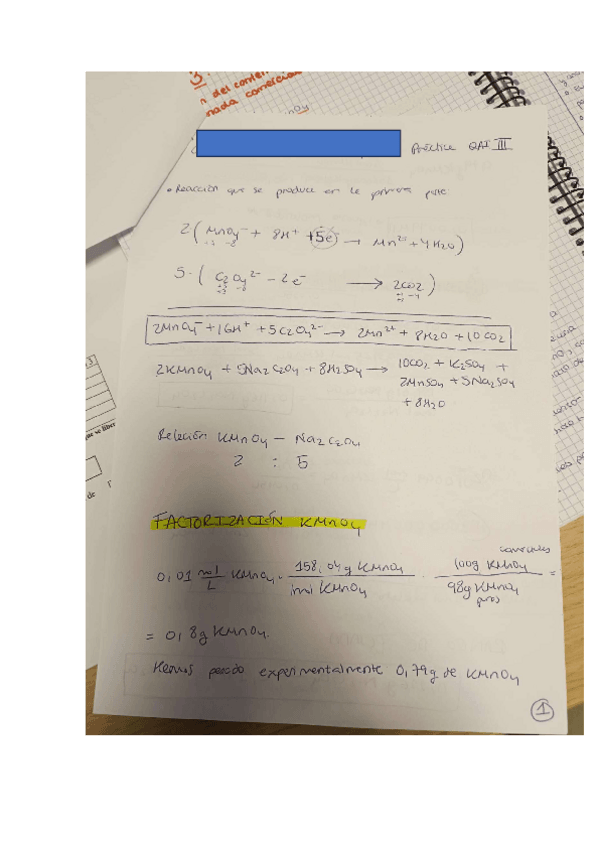 n del conten
nada comercial
Práctica QAI III
• Reacción que se produce en la primera parte:
2 ( MnO4⁻ + 8H⁺ + 5e⁻ → Mn²⁺ + 4H2O )
5 · ( C2O4²⁻ - 2e⁻ → 2CO2 )
2MnO4⁻ + 16H⁺ + 5C2O4²⁻ → 2Mn²⁺ + 8H2O + 10CO2
2KMnO4 + 5Na2C2O4 + 8H2SO4 → 10CO2 + K2SO4 +
2MnSO4 + 5Na2SO4
+ 8H2O
Relación KMnO4 - Na2C2O4
2 : 5
que se liber
de
FACTORIZACIÓN KMnO4
0,01 mol/L KMnO4 · 158,04g KMnO4/1mol KMnO4 · 100g KMnO4 comerciales/98g KMnO4 puros =
= 0,8g KMnO4.
Hemos pesado experimentalmente 0,79g de KMnO4
1